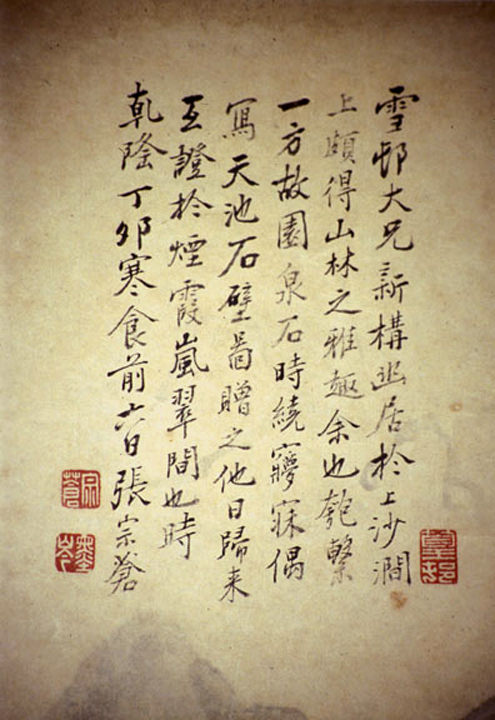 雪邨大兄新構幽居於上沙澗
上頗得山林之雅趣余也匏繫
一方故園泉石時繞寤寐偶
寫天池石壁啚贈之他日歸来
互證於煙霞嵐翠間也時
乾隆丁卯寒食前六日張宗蒼
宗蒼
墨岑